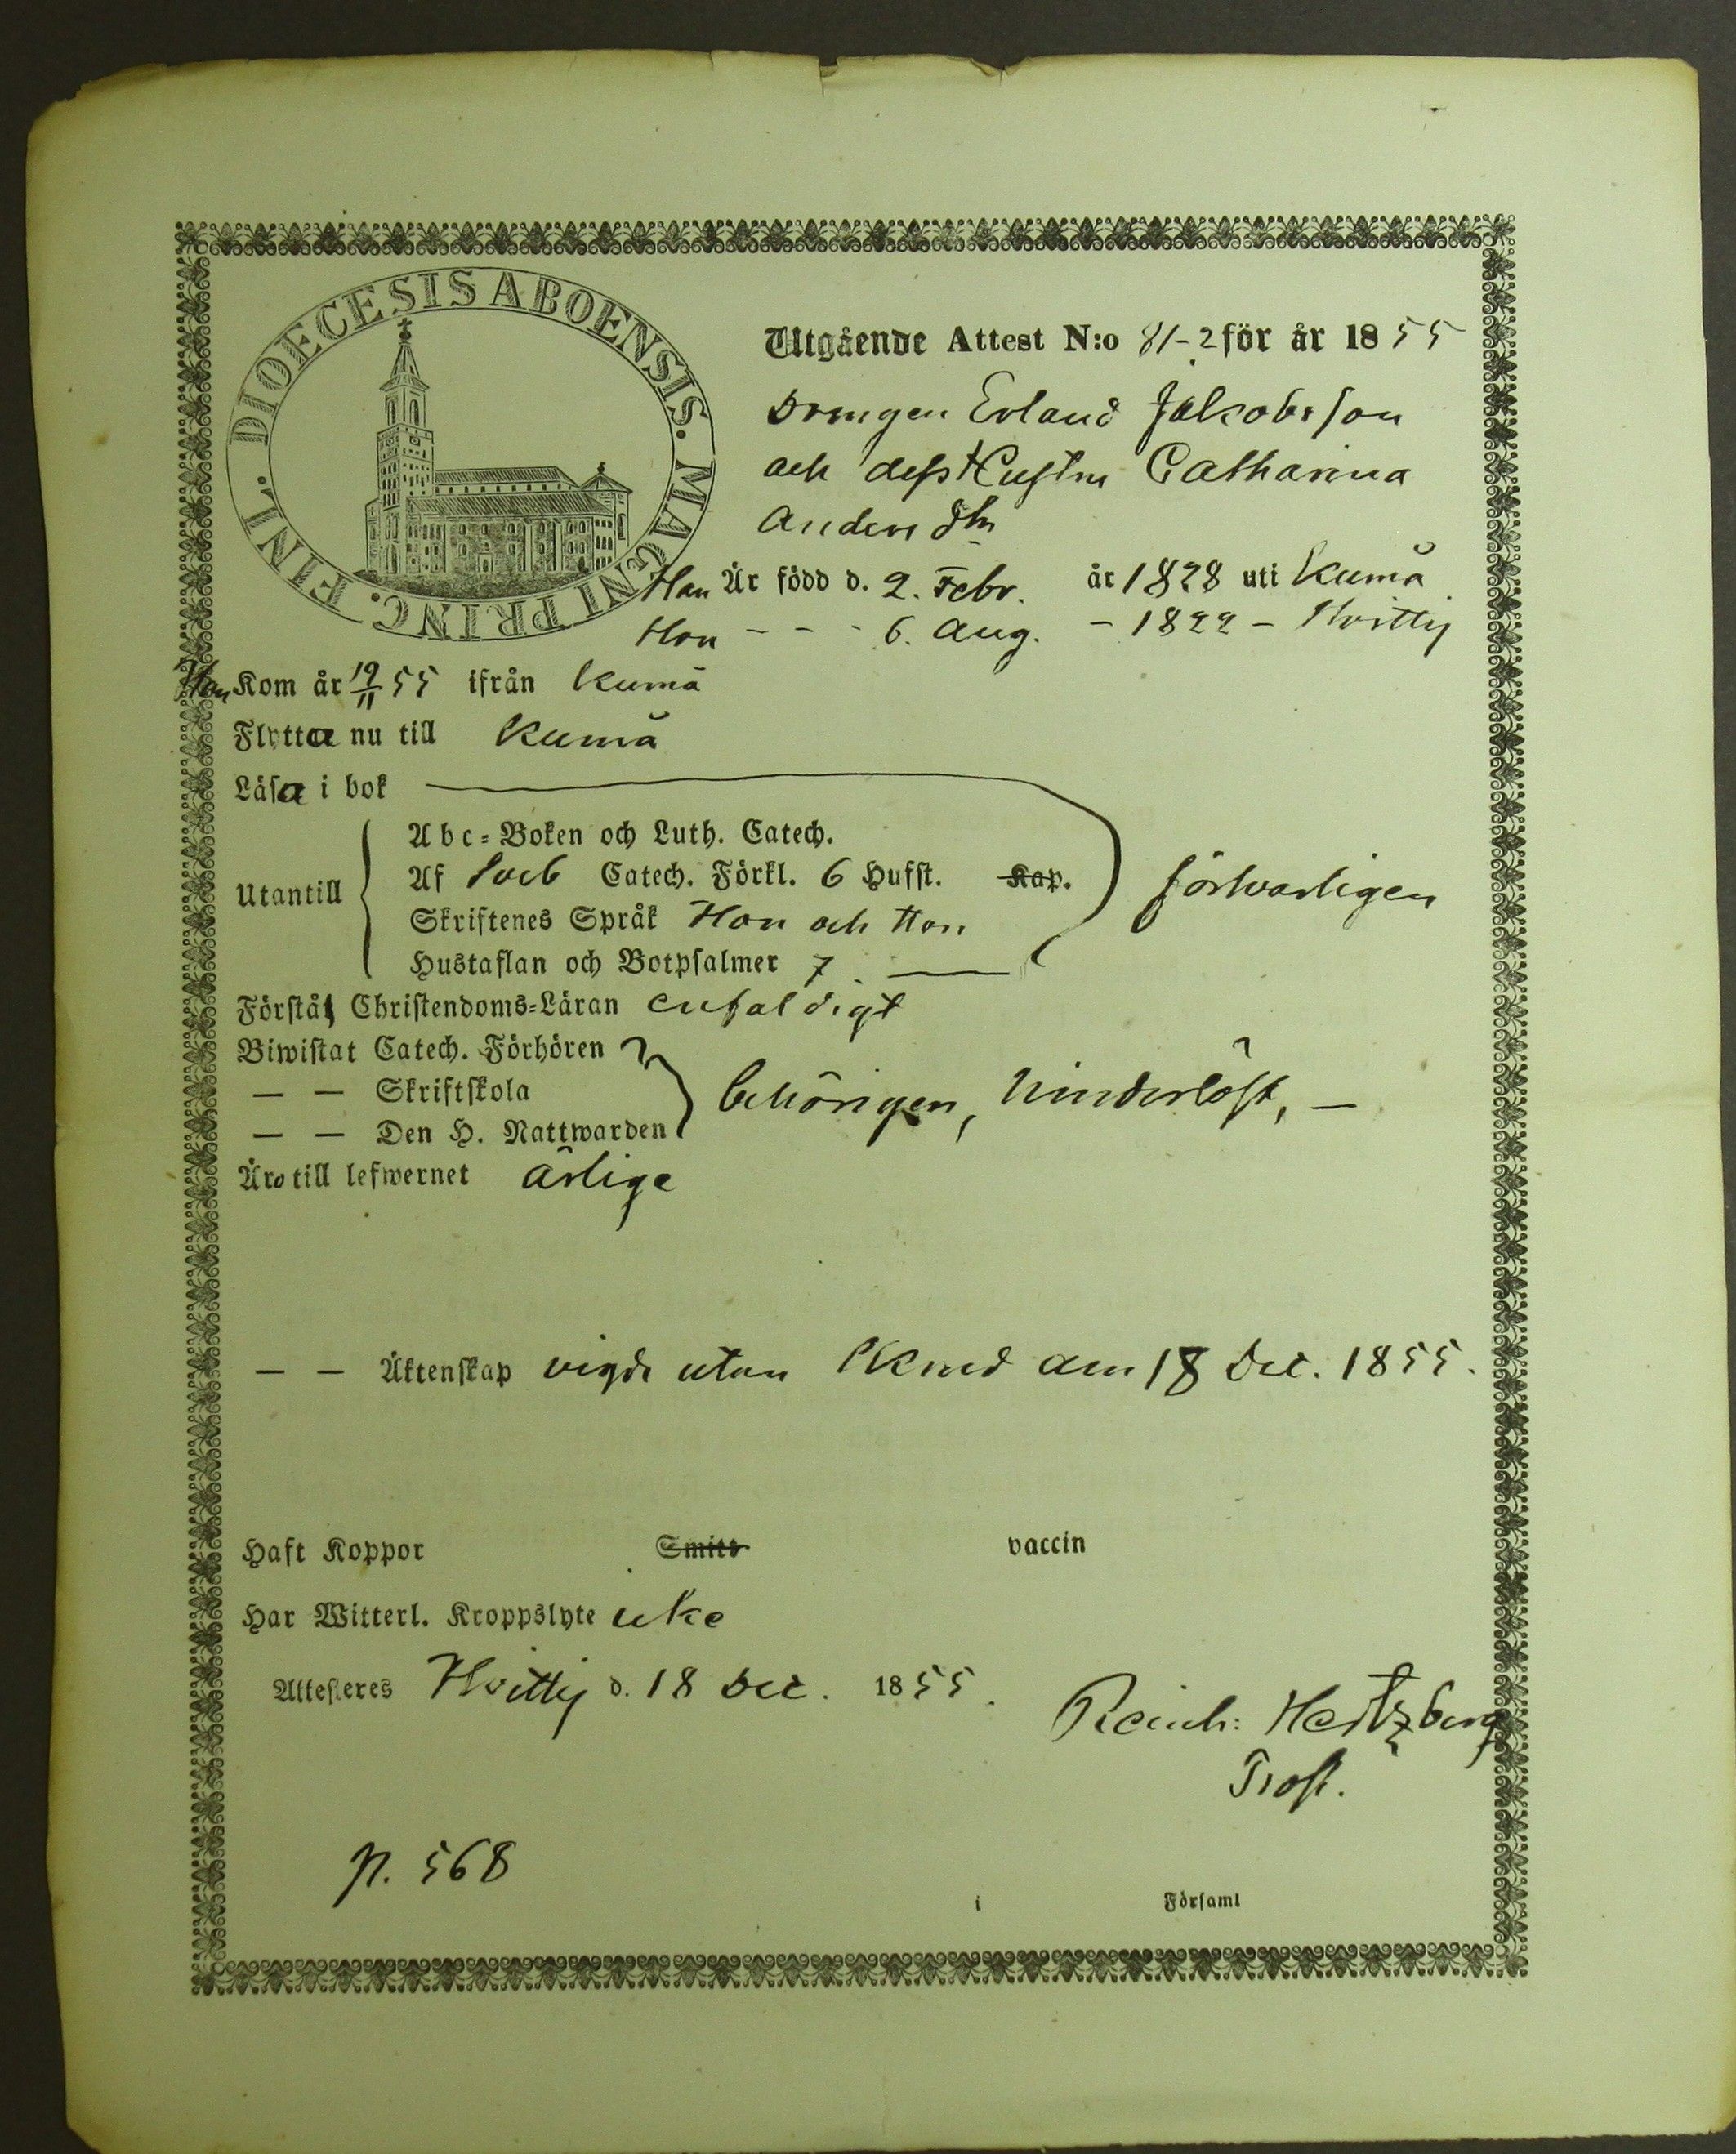 DIOECESIS ABOENSIS. MAGNI PRINC. FINL.
Utgående Attest N:o 81-2 för år 1855
Drengen Erland Jakobsson
och dess Hustru Catharina
Anders dtr
Han Är född d. 2. Febr. år 1828 uti Kumå
Hon - - - 6. Aug. - 1822 - Hvittis
Kom år 19/11 55 ifrån Kumå
Flytta nu till Kumå
Läsa i bok
Utantill
Abc-Boken och Luth. Catech.
Af Sveb Catech. Förkl. 6 Hufst. Kap.
Skriftenes Språk Han och Hon
Hustaflan och Botpsalmer 7
försvarligen
Förstå Christendoms-Läran enfaldigt
Biwistat Catech. Förhören
— — Skriftskola
— — Den H. Nattwarden
behörigen, hinderlöst, —
Äro till lefwernet ärlige
— — Äktenskap vigde utan den 18 Dec. 1855.
Haft Koppor Smitt vaccin
Har Witterl. Kroppslyte icke
Attesteres Hvittis d. 18 Dec. 1855.
Reinh: Hertzberg
Prost.
p. 568
i Församl